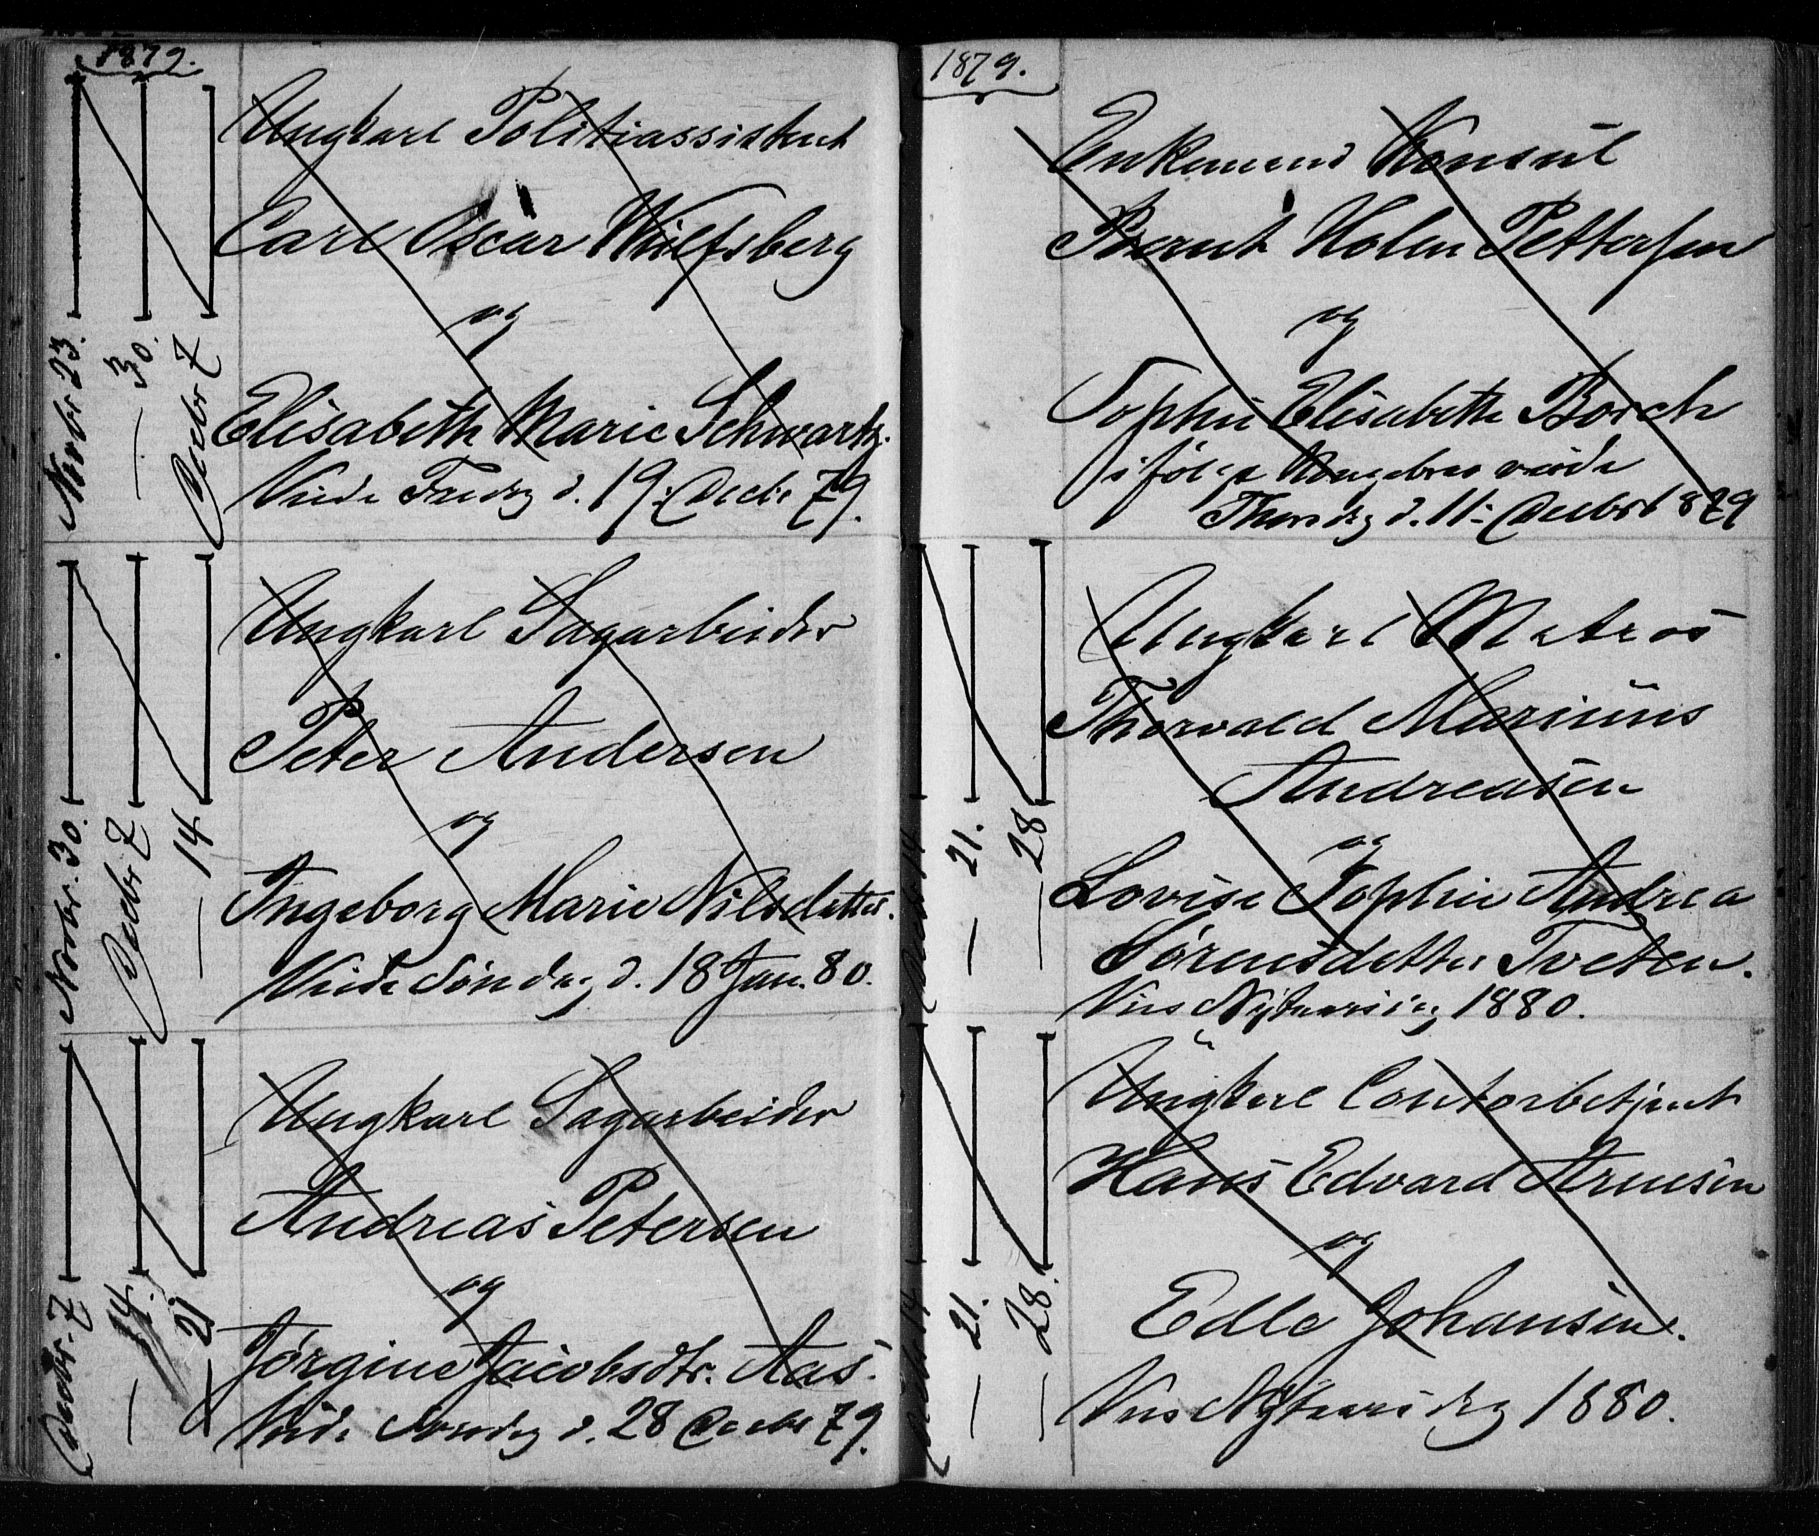 1879.
Novbr 23.
— 30.
Decbr 7
Ungkarl Politiassistent
Carl Oscar Wulfsberg
og
Elisabeth Marie Schwartz.
Viede Fredag d. 19. Decbr 79.
Novbr. 30.
Decbr 7
— 14
Ungkarl Sagarbeider
Peter Andersen
og
Ingeborg Marie Nilsdatter.
Viede Søndag d. 18 Jan. 80.
Decbr. 7
— 14.
— 21
Ungkarl Sagarbeider
Andreas Petersen
og
Jørgine Jacobsdtr. Aas.
Viede Søndag d. 28 Decbr 79.
1879.
Enkemand Konsul
Bernt Holm Pettersen
og
Sophie Elisabeth Borch
ifølge Kongebrev viede
Thorsdag d. 11. Decbr 1879
Decbr 14
— 21.
— 28
Ungkarl Matros
Thorvald Marinius
Andreasen
og
Lovise Sophie Andrea
Sørensdatter Tveten.
Vies Nytaarsdag 1880.
Decbr 14
— 21.
— 28.
Ungkarl Contorbetjent
Hans Edvard Arnesen
og
Edle Johansen.
Vies Nytaarsdag 1880.